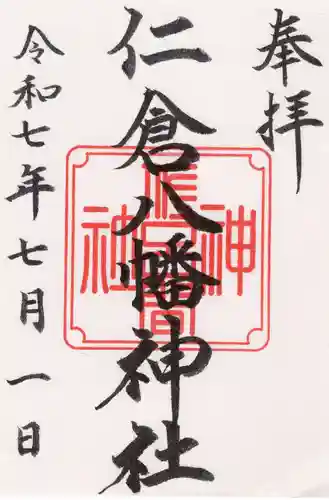 奉拝
仁倉八幡神社
令和七年七月一日
神社